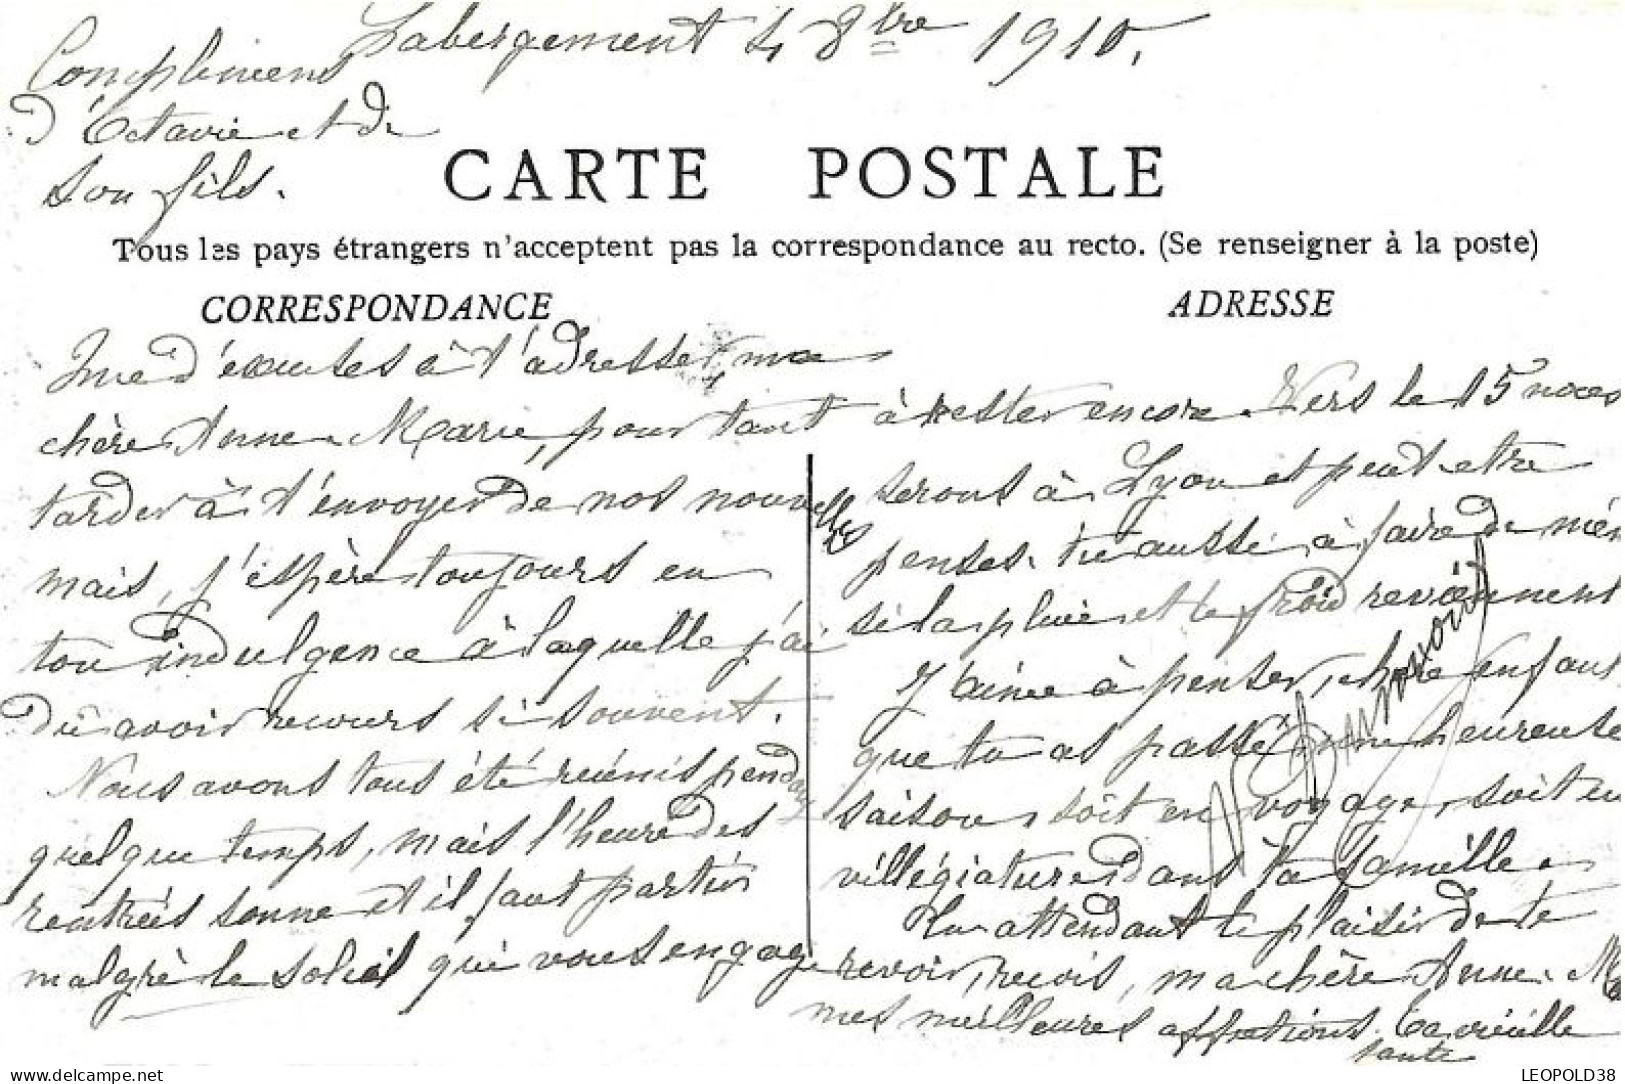 Labergement 4 8bre 1910,
Complimens
d'Octavie et de
son fils.
CARTE POSTALE
Tous les pays étrangers n'acceptent pas la correspondance au recto. (Se renseigner à la poste)
CORRESPONDANCE
ADRESSE
d'excuses à t'adresser, ma
chère Anne-Marie, pour tant
tarder à t'envoyer de nos nouvelles
mais, j'espère toujours en
ton indulgence à laquelle j'ai
dû avoir recours si souvent.
Nous avons tous été réunis pendant
quelque temps, mais l'heure des
rentrées sonne et il faut partir
malgré le soleil qui vous engage
à rester encore. Vers le 15 nous
serons à Lyon et peut-etre
penses-tu aussi à faire de mêm
si la pluie et le froid reviennent
J'aime à penser, chère enfant
que tu as passé une heureuse
saison, soit en voyage, soit en
villégiature dans ta famille.
En attendant le plaisir de te
revoir, reçois, ma chère Anne-Ma
mes meilleures affections. Ta vieille
tante
LEOPOLD38